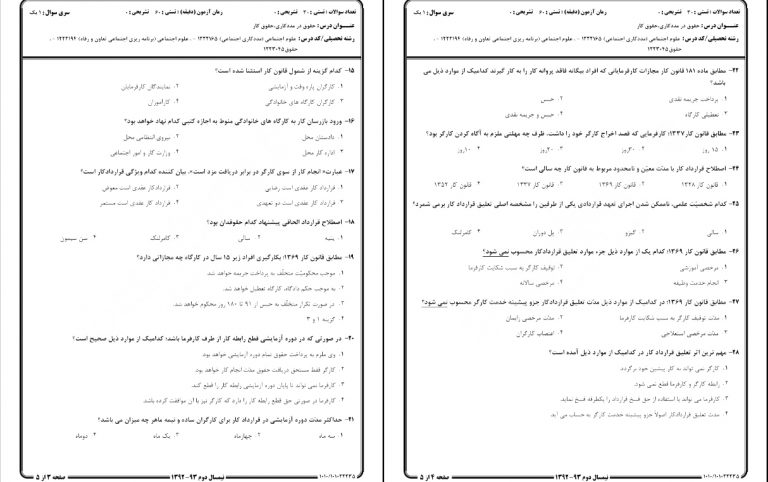 تعداد سوالات : تستی : ۳۰ تشریحی : ۰ زمان آزمون (دقیقه) : تستی : ۶۰ تشریحی : ۰ سری سوال : ۱ یک
عنوان درس : حقوق در مددکاری، حقوق کار
رشته تحصیلی/کد درس : علوم اجتماعی (مددکاری اجتماعی) ۱۲۲۲۱۶۵ - ، علوم اجتماعی (برنامه ریزی اجتماعی تعاون و رفاه) ۱۲۲۳۱۹۶ - ،
حقوق ۱۲۲۳۰۲۵
۱۵- کدام گزینه از شمول قانون کار استثنا شده است؟
۱. کارگران پاره وقت و آزمایشی ۲. نمایندگان کارفرمایان
۳. کارگران کارگاه های خانوادگی ۴. کارآموزان
۱۶- ورود بازرسان کار به کارگاه های خانوادگی منوط به اجازه کتبی کدام نهاد خواهد بود؟
۱. دادستان محل ۲. نیروی انتظامی محل
۳. اداره کار محل ۴. وزارت کار و امور اجتماعی
۱۷- عبارت« انجام کار از سوی کارگر در برابر دریافت مزد است»، بیان کننده کدام ویژگی قراردادکار است؟
۱. قرارداد کار عقدی است رضایی ۲. قراردادکار عقدی است معوض
۳. قرارداد کار عقدی است دو تعهدی ۴. قرارداد کار عقدی است مستمر
۱۸- اصطلاح قرارداد الحاقی پیشنهاد کدام حقوقدان بود؟
۱. پنیه ۲. سالی ۳. کامرلنک ۴. سن سیمون
۱۹- مطابق قانون کار ۱۳۶۹؛ بکارگیری افراد زیر ۱۵ سال در کارگاه چه مجازاتی دارد؟
۱. موجب محکومیّت متخلّف به پرداخت جریمه خواهد شد.
۲. به موجب حکم دادگاه، کارگاه تعطیل خواهد شد.
۳. در صورت تکرار متخلّف به حبس از ۹۱ تا ۱۸۰ روز محکوم خواهد شد.
۴. گزینه ۱ و ۳
۲۰- در صورتی که در دوره آزمایشی قطع رابطه کار از طرف کارفرما باشد؛ کدامیک از موارد ذیل صحیح است؟
۱. وی ملزم به پرداخت حقوق تمام دوره آزمایشی خواهد بود.
۲. کارگر فقط مستحق دریافت حقوق مدّت انجام کار خواهد بود.
۳. کارفرما نمی تواند تا پایان دوره آزمایشی رابطه کار را قطع کند.
۴. کارفرما در صورتی حق قطع رابطه کار را دارد که کارگر نیز با آن موافقت کرده باشد.
۲۱- حداکثر مدّت دوره آزمایشی در قرارداد کار برای کارگران ساده و نیمه ماهر چه میزان می باشد؟
۱. سه ماه ۲. چهارماه ۳. یک ماه ۴. دوماه
نیمسال دوم ۹۳-۱۳۹۲ صفحه ۳ از ۵
تعداد سوالات : تستی : ۳۰ تشریحی : ۰ زمان آزمون (دقیقه) : تستی : ۶۰ تشریحی : ۰ سری سوال : ۱ یک
عنوان درس : حقوق در مددکاری، حقوق کار
رشته تحصیلی/کد درس : علوم اجتماعی (مددکاری اجتماعی) ۱۲۲۲۱۶۵ - ، علوم اجتماعی (برنامه ریزی اجتماعی تعاون و رفاه) ۱۲۲۳۱۹۶ - ،
حقوق ۱۲۲۳۰۲۵
۲۲- مطابق ماده ۱۸۱ قانون کار مجازات کارفرمایانی که افراد بیگانه فاقد پروانه کار را به کار گیرند کدامیک از موارد ذیل می
باشد؟
۱. پرداخت جریمه نقدی ۲. حبس
۳. تعطیلی کارگاه ۴. حبس و جریمه نقدی
۲۳- مطابق قانون کار۱۳۳۷؛ کارفرمایی که قصد اخراج کارگر خود را داشت، ظرف چه مهلتی ملزم به آگاه کردن کارگر بود؟
۱. ۱۵ روز ۲. ۳۰روز ۳. ۲۰روز ۴. ۱۰روز
۲۴- اصطلاح قرارداد کار با مدّت معیّن و نامحدود مربوط به قانون کار چه سالی است؟
۱. قانون کار ۱۳۲۸ ۲. قانون کار ۱۳۶۹ ۳. قانون کار ۱۳۳۷ ۴. قانون کار ۱۳۵۲
۲۵- کدام شخصیّت علمی، ناممکن شدن اجرای تعهد قراردادی یکی از طرفین را مشخصه اصلی تعلیق قرارداد کار برمی شمرد؟
۱. سالی ۲. گیزو ۳. پل دوران ۴. کامرلنگ
۲۶- مطابق قانون کار ۱۳۶۹؛ کدام یک از موارد ذیل جزء موارد تعلیق قراردادکار محسوب نمی شود؟
۱. مرخصی آموزشی ۲. توقیف کارگر به سبب شکایت کارفرما
۳. انجام خدمت وظیفه ۴. مرخصی سالانه
۲۷- مطابق قانون کار ۱۳۶۹؛ در کدامیک از موارد ذیل مدّت تعلیق قراردادکار جزو پیشینه خدمت کارگر محسوب نمی شود؟
۱. مدّت توقیف کارگر به سبب شکایت کارفرما ۲. مدّت مرخصی زایمان
۳. مدّت مرخصی استعلاجی ۴. اعتصاب کارگران
۲۸- مهم ترین اثر تعلیق قرارداد کار در کدامیک از موارد ذیل آمده است؟
۱. کارگر نمی تواند به کار پیشین خود برگردد.
۲. رابطه کارگر و کارفرما قطع نمی شود.
۳. کارفرما می تواند با استفاده از حق فسخ قرارداد را یکطرفه فسخ نماید.
۴. مدّت تعلیق قراردادکار اصولا جزو پیشینه خدمت کارگر به حساب می آید.
نیمسال دوم ۹۳-۱۳۹۲ صفحه ۴ از ۵